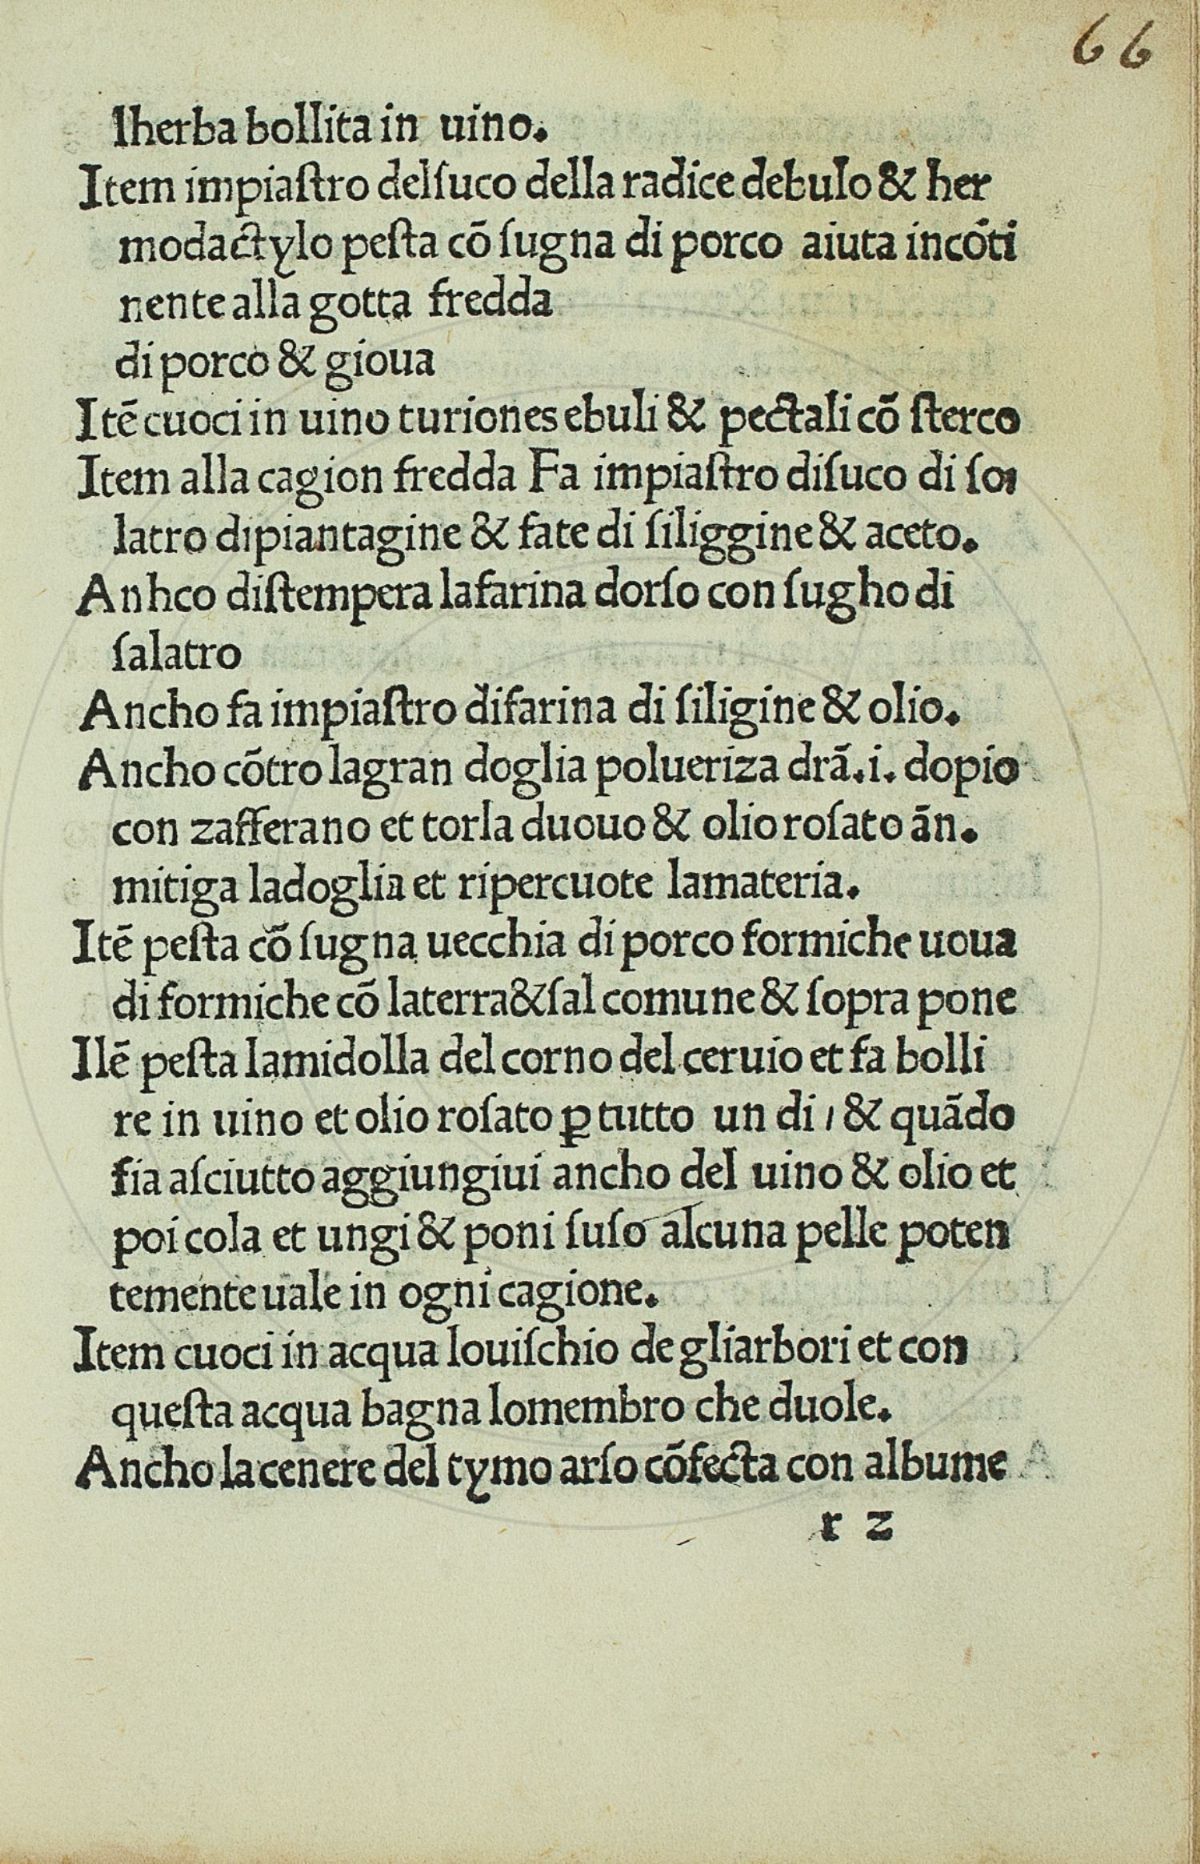 66
lherba bollita in uino.
Item impiaſtro delſuco della radice debulo & her
modactylo peſta cõ ſugna di porco aiuta incõti
nente alla gotta fredda
di porco & gioua
Itẽ cuoci in uino turiones ebuli & pectali cõ ſterco
Item alla cagion fredda Fa impiaſtro diſuco di ſo
latro dipiantagine & fate di ſiliggine & aceto.
Anhco diſtempera lafarina dorſo con ſugho di
ſalatro
Ancho fa impiaſtro difarina di ſiligine & olio.
Ancho cõtro lagran doglia polueriza drã.i. dopio
con zafferano et torla duouo & olio roſato ãn.
mitiga ladoglia et ripercuote lamateria.
Itẽ peſta cõ ſugna uecchia di porco formiche uoua
di formiche cõ laterra&ſal comune & ſopra pone
Ilẽ peſta lamidolla del corno del ceruio et fa bolli
re in uino et olio roſato ꝑ tutto un di / & quãdo
fia aſciutto aggiungiui ancho del uino & olio et
poi cola et ungi & poni ſuſo alcuna pelle poten
temente uale in ogni cagione.
Item cuoci in acqua louiſchio de gliarbori et con
queſta acqua bagna lomembro che duole.
Ancho lacenere del tymo arſo cõfecta con albume
r 2